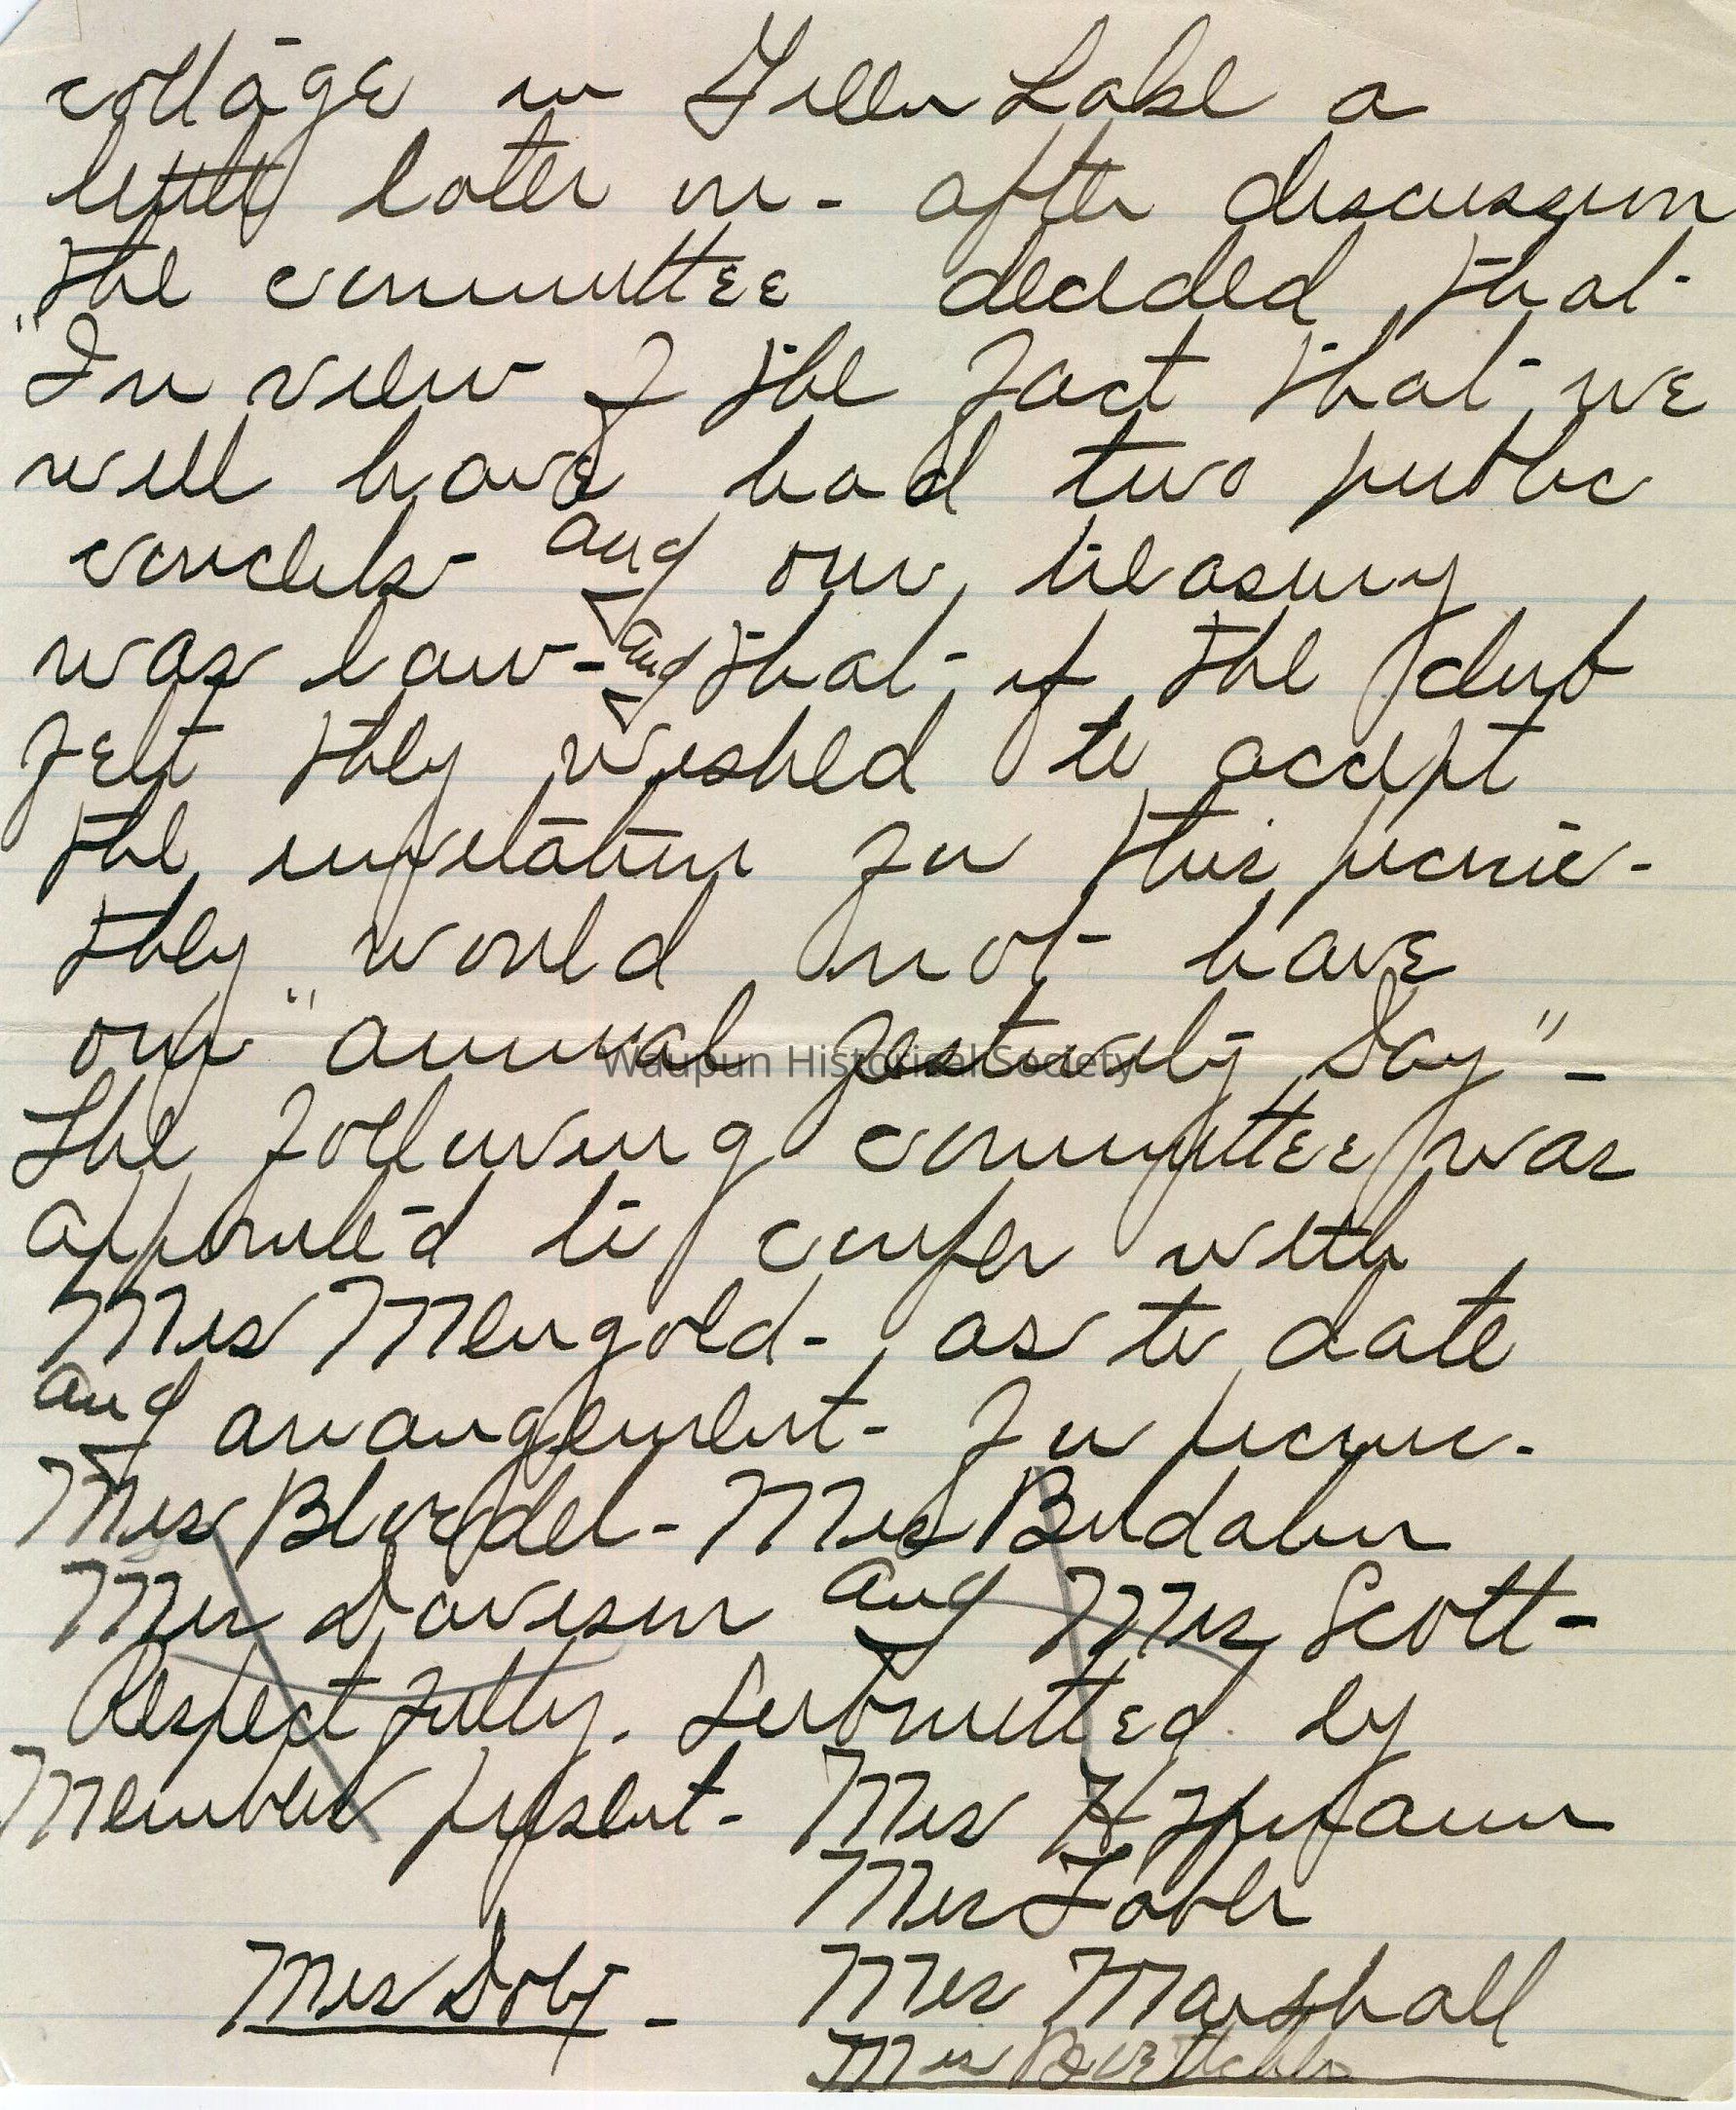 cottage in Green Lake a
little later on - after discussion
the committee decided that
"In view of the fact that we
will have had two public
concerts - and our treasury
was low - and that if the club
felt they wished to accept
the invitation for this picnic -
they would not have
our "annual festivity Day" -
The following committee was
appointed to confer with
Mrs Mengold - as to date
and arrangement - for picnic -
Mrs Bloedel - Mrs Budahn
Mrs Davison and Mrs Scott -
Respectfully. Submitted by
Members present - Mrs Hoffmann
Mrs Faber
Mrs Doby - Mrs Marshall
Mrs Boettcher
Waupun Historical Society